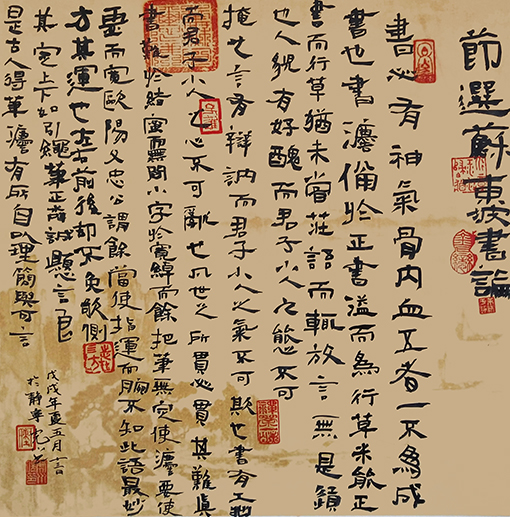 節選蘇東坡書論
書必有神氣骨肉血五者一不為成
書也書灋備於正書溢而為行草未能正
書而行草猶未嘗莊語而輒放言無是
也人貌有好醜而君子小人之態不可
掩也言有辯訥而君子小人之氣不可欺也書有工拙
而君子小人之心不可亂也凡世之所貴必貴其難真
書難於結密而無間小字於寬綽而餘把筆無定使灋要使
虛而寬歐陽文忠公謂餘當使指運而腕不知此語最妙
方其運也左右前後却不免欹側
其定上下如引繩筆正誠懸言良
是古人得筆灋有所自以理簡與可言
戊戌年夏五月
於靜寧